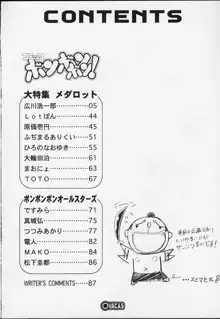 CONTENTS
ボンボボン!
大特集 メダロット
広川浩一郎 05
Lotぱん 44
原価壱円 47
ふぢまるありくい 51
ひろのなおゆき 52
大輪田泊 57
まおにょ 63
TOTO 67
ボンボンボンオールスターズ
ですみら 71
真城弘 75
つつみあかり 77
電人 82
MAKO 84
松下圭都 86
WRITER'S COMMENTS 87
VACAS